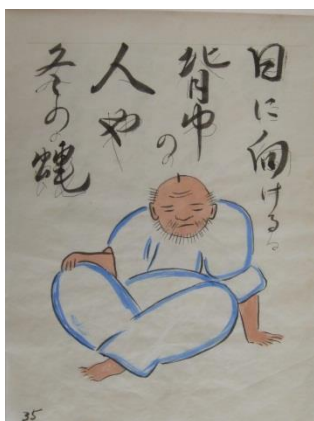 日に向ける
背中の
人や
冬の蝿
35